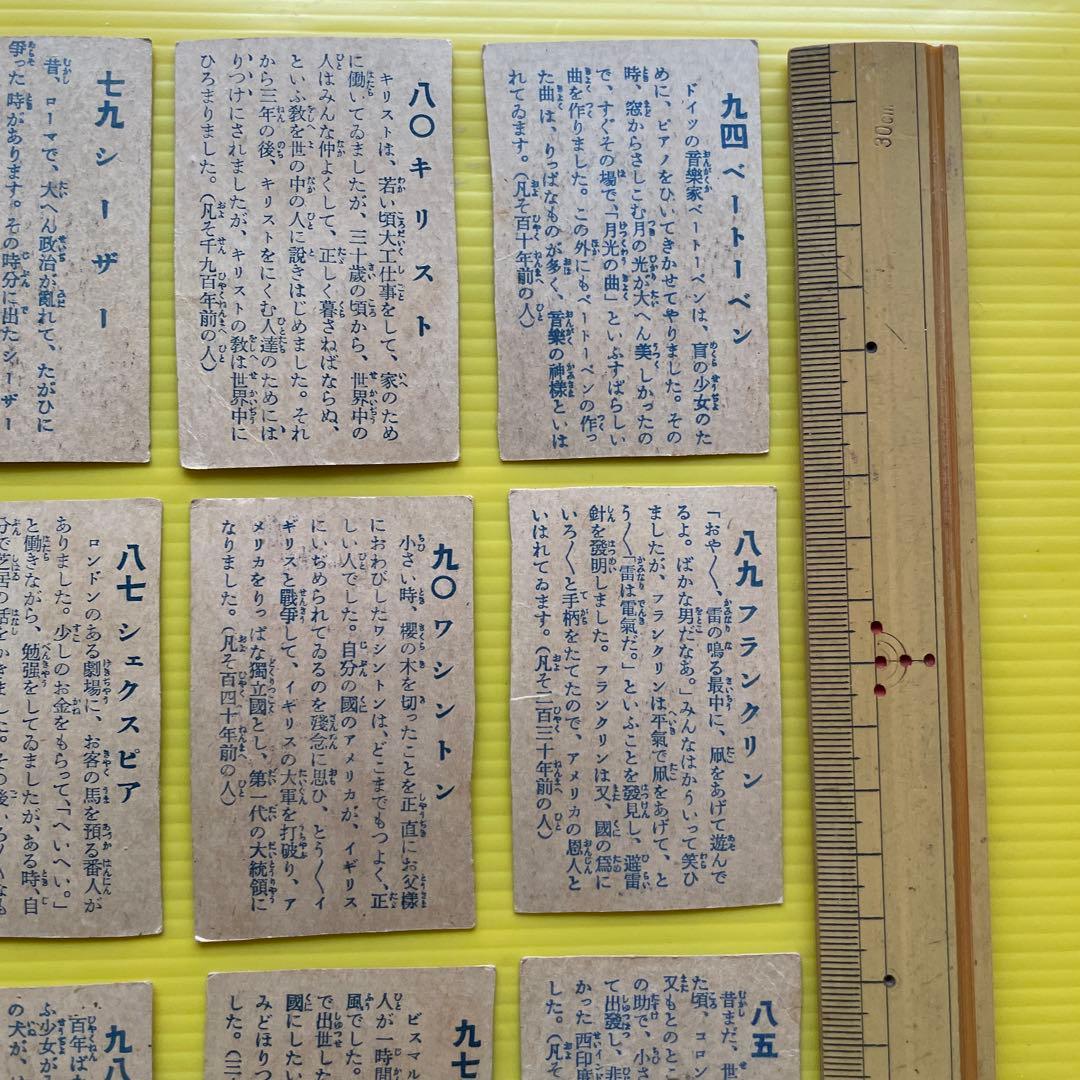 九四 ベートーベン
ドイツの音樂家ベートーベンは、盲の少女のた
めに、ピアノをひいてきかせてやりました。その
時、窓からさしこむ月の光が大へん美しかったの
で、すぐその場で、「月光の曲」といふすばらしい
曲を作りました。この外にもベートーベンの作っ
た曲は、りっぱなものが多く、音樂の神樣といは
れてゐます。（凡そ百十年前の人）
八〇 キリスト
キリストは、若い頃大工仕事をして、家のため
に働いてゐましたが、三十歳の頃から、世界中の
人はみんな仲よくして、正しく暮さねばならぬ、
といふ敎を世の中の人に説きはじめました。それ
から三年の後、キリストをにくむ人達のためには
りつけにされましたが、キリストの敎は世界中に
ひろまりました。（凡そ千九百年前の人）
七九 シーザー
昔、ローマで、大へん政治が亂れて、たがひに
爭った時があります。その時分に出たシーザー
八九 フランクリン
「おや〳〵、雷の鳴る最中に、凧をあげて遊んで
るよ。ばかな男だなあ。」みんなはかういって笑ひ
ましたが、フランクリンは平氣で凧をあげて、と
う〳〵「雷は電氣だ。」といふことを發見し、避雷
針を發明しました。フランクリンは又、國の爲に
いろ〳〵と手柄をたてたので、アメリカの恩人と
いはれてゐます。（凡そ二百三十年前の人）
九〇 ワシントン
小さい時、櫻の木を切ったことを正直にお父樣
におわびしたワシントンは、どこまでもつよく、正
しい人でした。自分の國のアメリカが、イギリス
にいぢめられてゐるのを殘念に思ひ、とう〳〵イ
ギリスと戰爭して、イギリスの大軍を打破り、ア
メリカをりっぱな獨立國とし、第一代の大統領に
なりました。（凡そ百四十年前の人）
八七 シェクスピア
ロンドンのある劇場に、お客の馬を預る番人が
ありました。少しのお金をもらって、「へいへい。」
と働きながら、勉强をしてゐましたが、ある時、自
分で芝居の話をかきました。その後
八五
昔まだ、世
た頃、コロン
又もとのとこ
の助で、小さ
て出發し、非
かった西印度
した。（凡そ
九七
ビスマル
人が一時間
風でした。
で出世した
國にしたい
みどほりつ
した。（三
九八
百年ば
ふ少女が
の犬が、
30cm